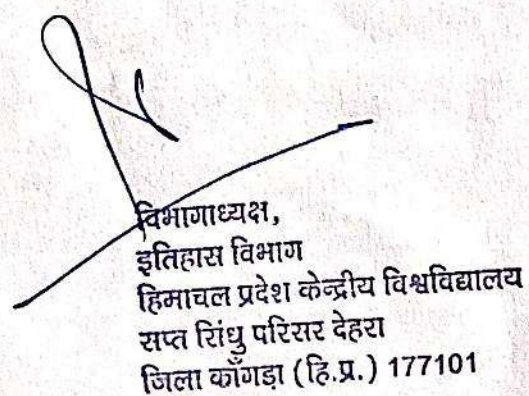 विभागाध्यक्ष,
इतिहास विभाग
हिमाचल प्रदेश केन्द्रीय विश्वविद्यालय
सप्त सिंधु परिसर देहरा
जिला काँगड़ा (हि.प्र.) 177101